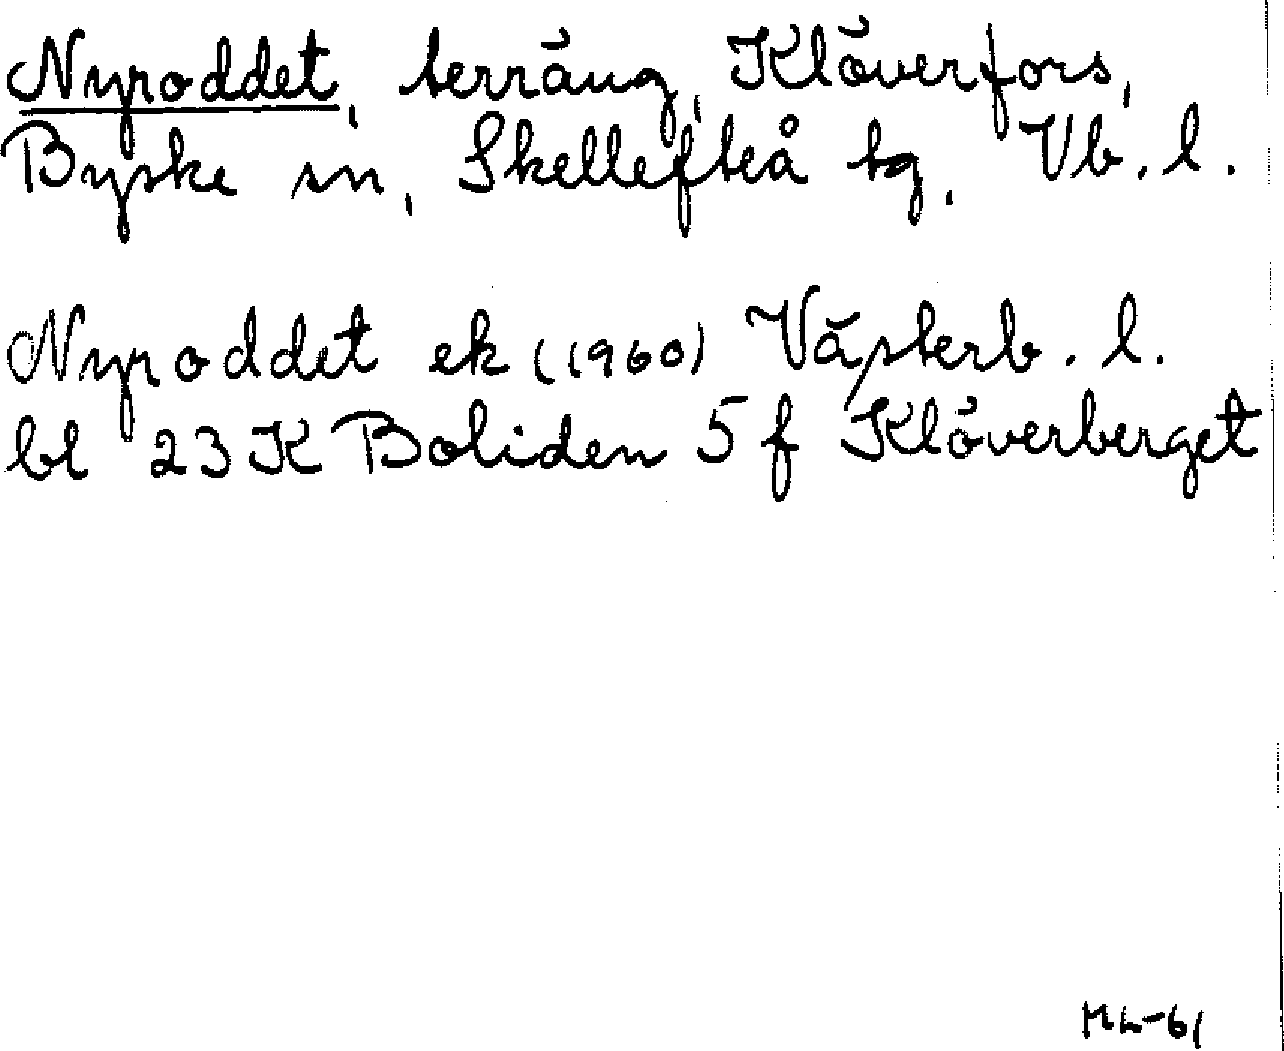 Nyroddet, terräng, Klöverfors,
Byske sn, Skellefteå tg, Vb. l.
Nyroddet ek (1960) Västerb. l.
bl 23 K Boliden 5 f Klöverberget
ML-61